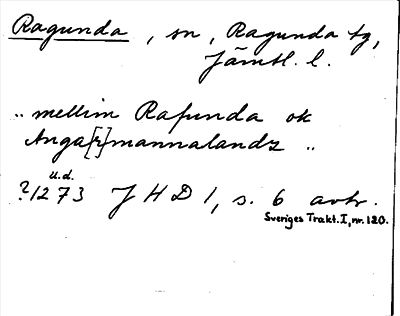 Ragunda, sn, Ragunda tg,
Jämtl. l.
„ mellim Rafunda ok
Anga[r]mannalandz „
u.d.
?1273 JHD 1, s. 6 avtr.
Sveriges Trakt. I, nr. 120.